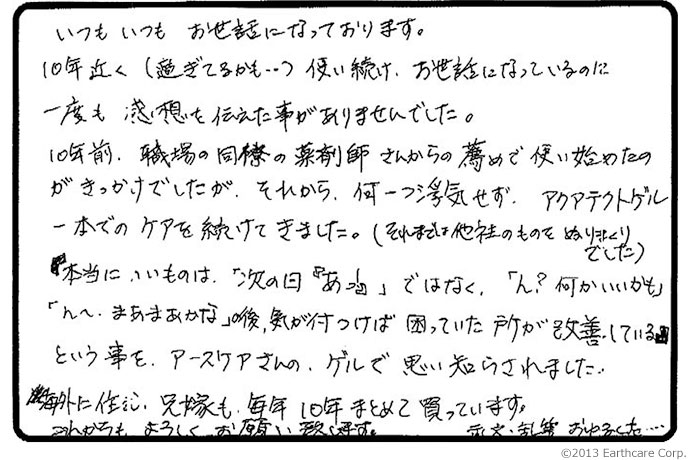 いつも いつも お世話になっております。
10年近く(過ぎてるかも…)使い続け、お世話になっているのに
一度も 感想を伝えた事がありませんでした。
10年前、職場の同僚の薬剤師さんからの薦めで使い始めたの
がきっかけでしたが、それから、何一つ浮気せず、アクアテクトゲル
一本でのケアを続けてきました。(それまでは他社のものをぬりまくり
でした)
『本当にいいものは、「次の日『あっ』」ではなく、「ん?何かいいかも」
「ん〜、まあまあかな」の後、気が付つけば困っていた所が改善している』
という事を、アースケアさんの、ゲルで思い知らされました。
海外に住む、兄嫁も、毎年10年まとめて買っています。
これからも よろしく お願い致します。 乱文・乱筆 おゆるし下…
©2013 Earthcare Corp.